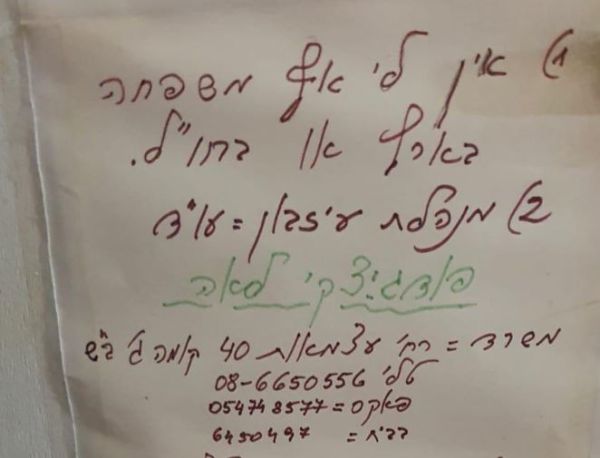 1) אין לי אף משפחה
בארץ או בחו"ל.
2) מנהלת עיזבון = עו"ד
פודגיצקי לאה
משרד = רח' עצמאות 40 קומה ג' ב"ש
טלי 08-6650556
פאקס = 054748577
בב"ח = 6450497